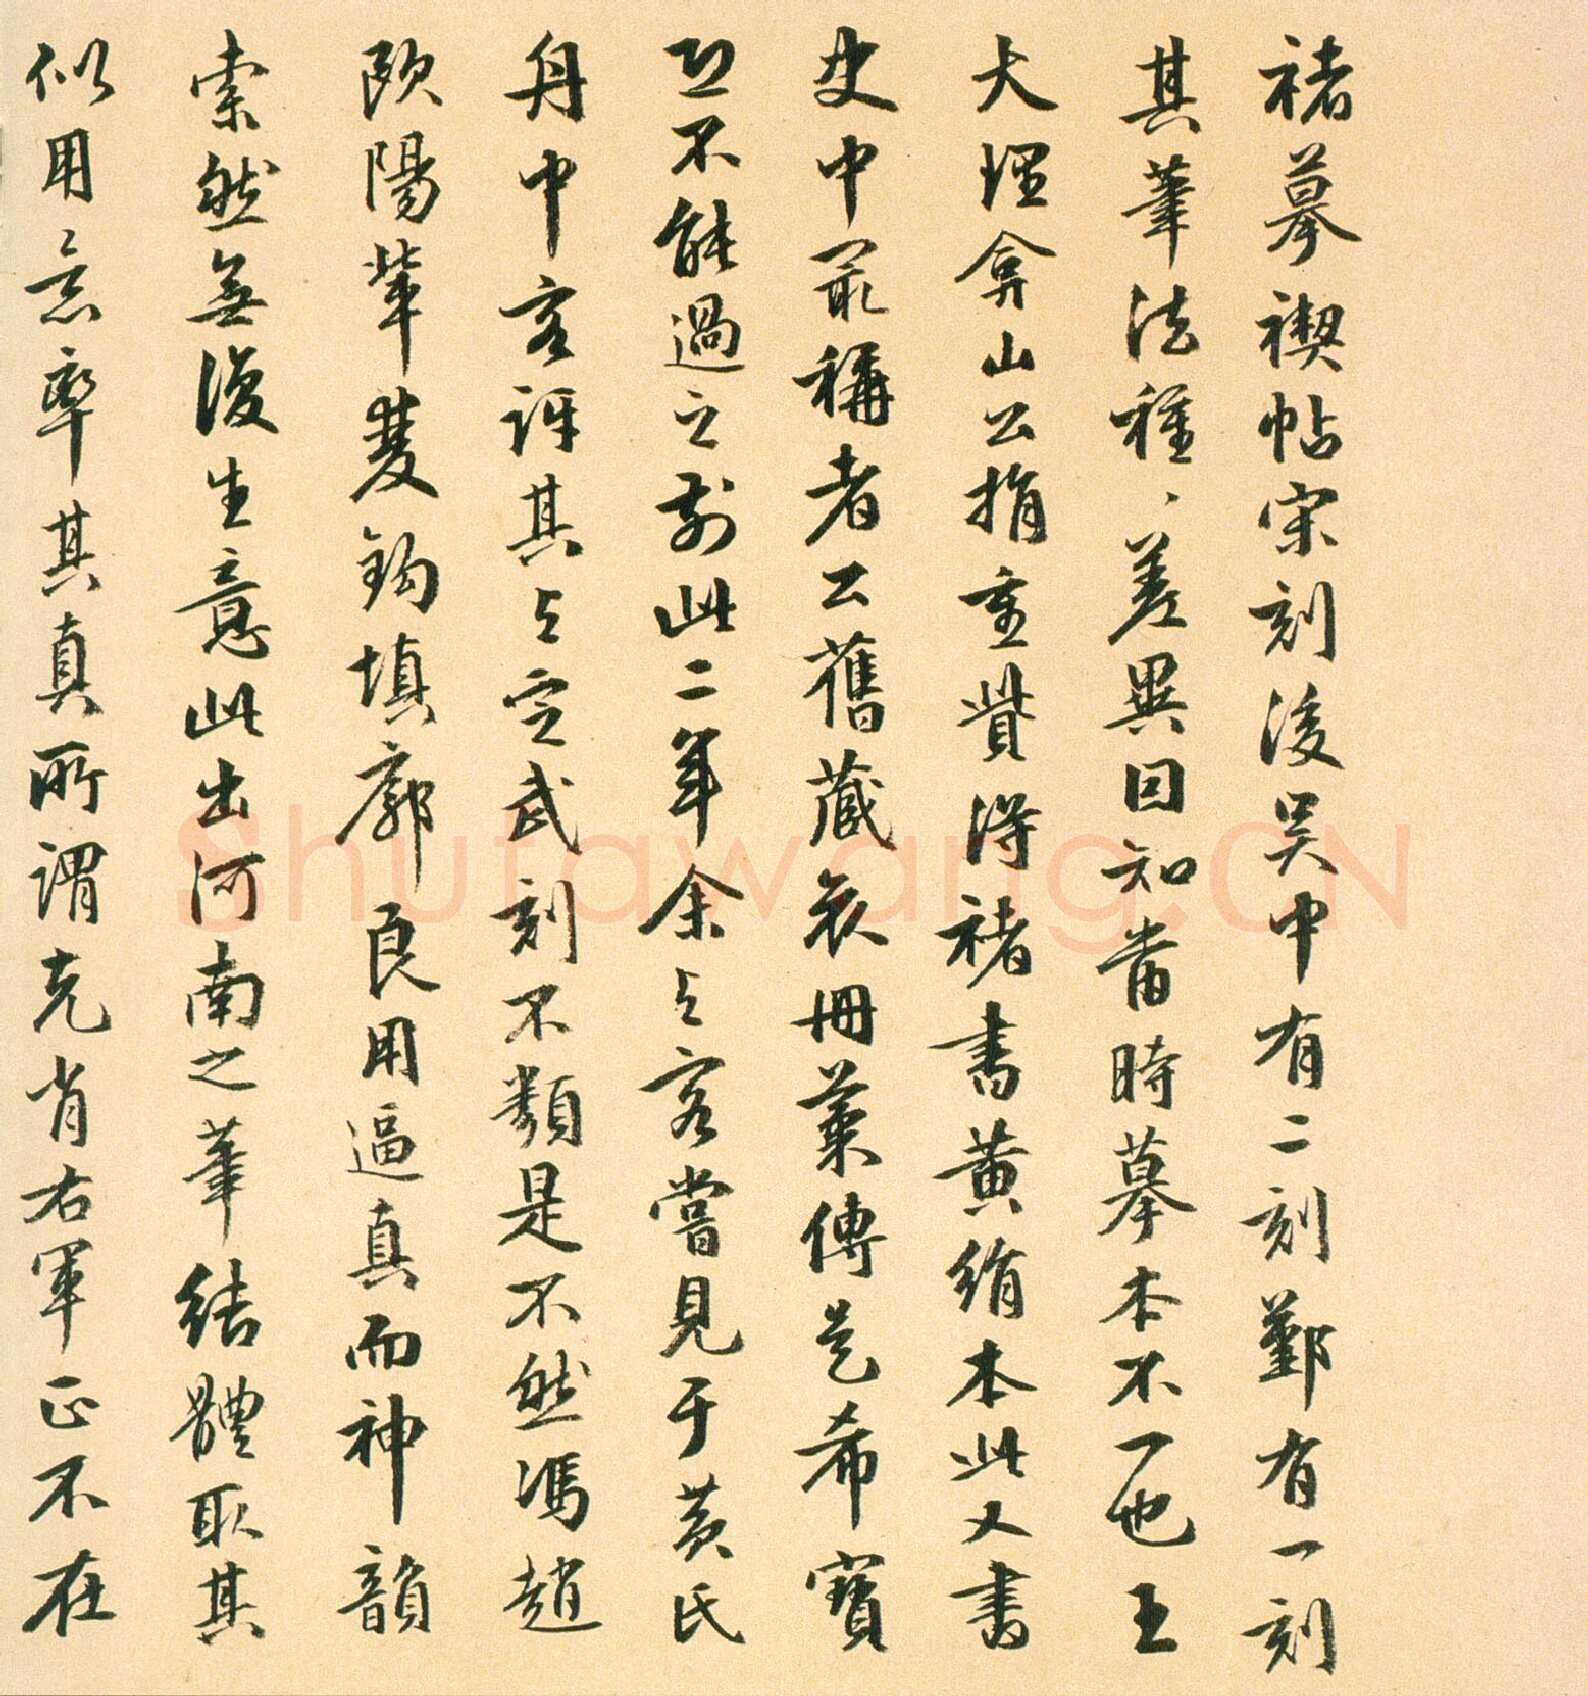 褚摹禊帖宋刻後吳中有二刻鄞有一刻
其筆法種、差異因知當時摹本不一也王
大理弇山公捐重貲得褚書黃絹本此又書
史中最稱者公舊藏裝冊葉傳是希寶
恐不能過之前此二年余與客嘗見于黃氏
舟中客訝其與定武刻不類是不然馮趙
歐陽輩雙鈎填廓良用逼真而神韻
索然無復生意此出河南之筆結體取其
似用意率其真所謂克肖右軍正不在
Shufawang.CN